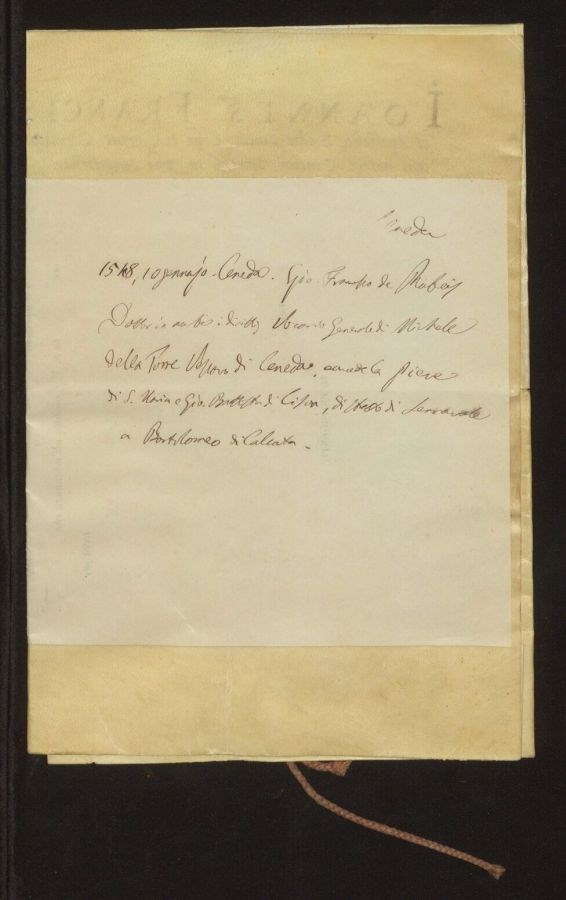 IOANNES FRANCIS
Ceneda
1548, 10 gennajo. Ceneda. Gio. Franco de Rubeis
Dottor in ambi i diritti Vicario Generale di Michele
della Torre Vescovo di Ceneda, concede la pieve
di S. Maria e Gio. Battista di Cison, distretto di Serravalle
a Bortolomeo di Calcata.